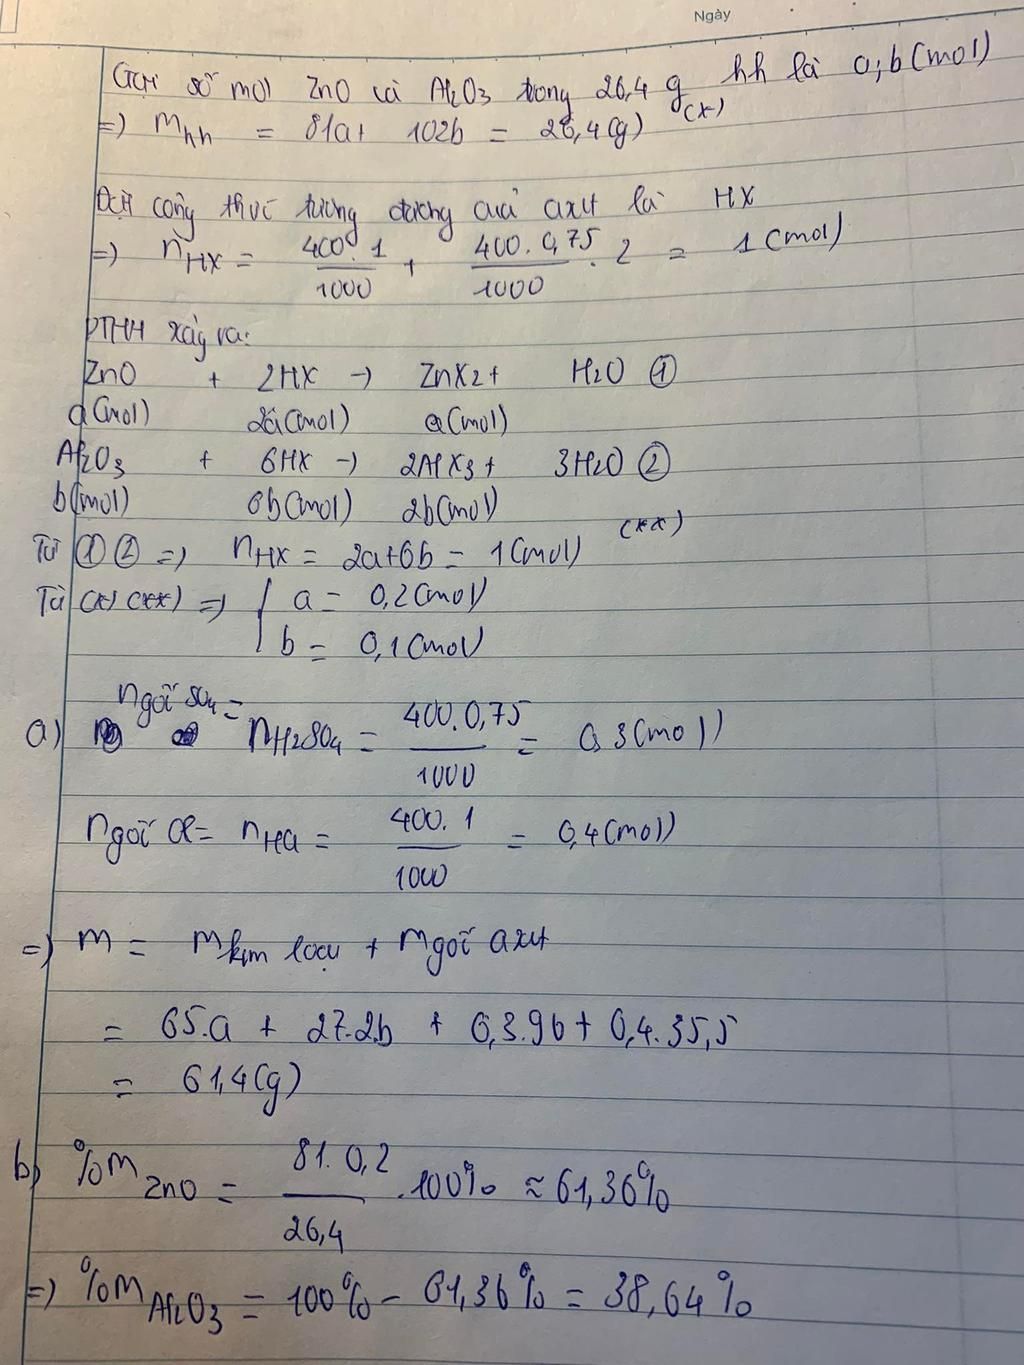 Ngày
Gọi số mol ZnO và Al2O3 trong 26,4 g hh là a, b (mol)
=) mhh = 81a + 102b = 26,4 (g) (*)
Đặt công thức tương đương của axit là HX
=) nHX = 400.1/1000 + 400.0,75/1000 . 2 = 1 (mol)
PTHH xảy ra:
ZnO + 2HX -> ZnX2 + H2O ①
a (mol) 2a (mol) a (mol)
Al2O3 + 6HX -> 2AlX3 + 3H2O ②
b (mol) 6b (mol) 2b (mol)
Từ ① ② =) nHX = 2a + 6b = 1 (mol) (**)
Từ (*) (**) =) { a = 0,2 (mol)
b = 0,1 (mol)
a) ngốc SO4 = nH2SO4 = 400.0,75/1000 = 0,3 (mol)
ngốc Cl = nHCl = 400.1/1000 = 0,4 (mol)
=) m = mkim loại + mgốc axit
= 65.a + 27.2b + 0,3.96 + 0,4.35,5
= 61,4 (g)
b) %mZnO = 81.0,2/26,4 .100% ≈ 61,36%
=) %mAl2O3 = 100% - 61,36% = 38,64%